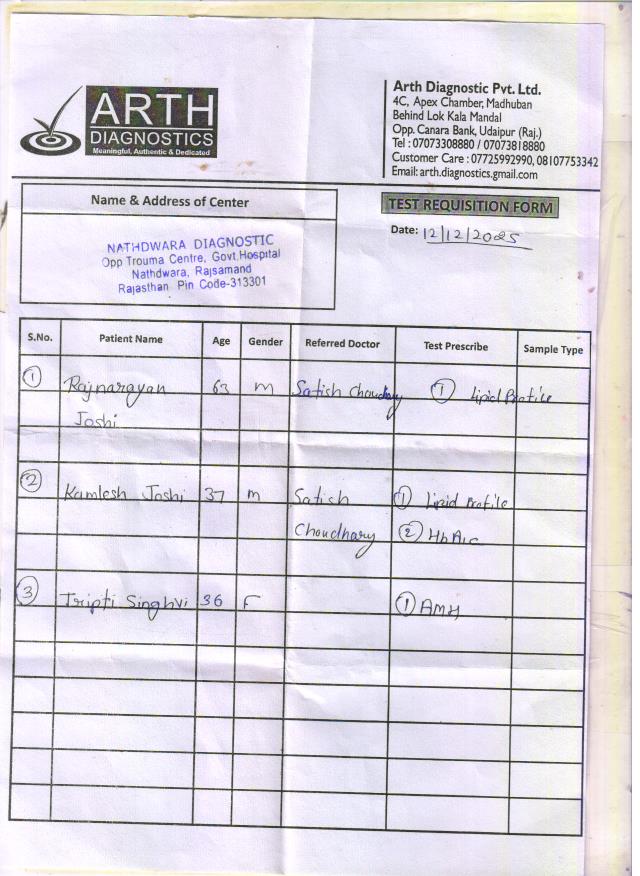 ARTH
DIAGNOSTICS
Meaningful, Authentic & Dedicated
Arth Diagnostic Pvt. Ltd.
4C, Apex Chamber, Madhuban
Behind Lok Kala Mandal
Opp. Canara Bank, Udaipur (Raj.)
Tel : 07073308880 / 07073818880
Customer Care : 07725992990, 08107753342
Email: arth.diagnostics.gmail.com
Name & Address of Center
TEST REQUISITION FORM
NATHDWARA DIAGNOSTIC
Opp Trouma Centre, Govt.Hospital
Nathdwara, Rajsamand
Rajasthan Pin Code-313301
Date: 12/12/2025
S.No. Patient Name Age Gender Referred Doctor Test Prescribe Sample Type
1 Rajnarayan 63 m Satish Choudhary 1 Lipid Profile
Joshi
2 Kamlesh Joshi 37 m Satish 1 Lipid Profile
Choudhary 2 HbA1c
3 Tripti Singhvi 36 F 1 AMH